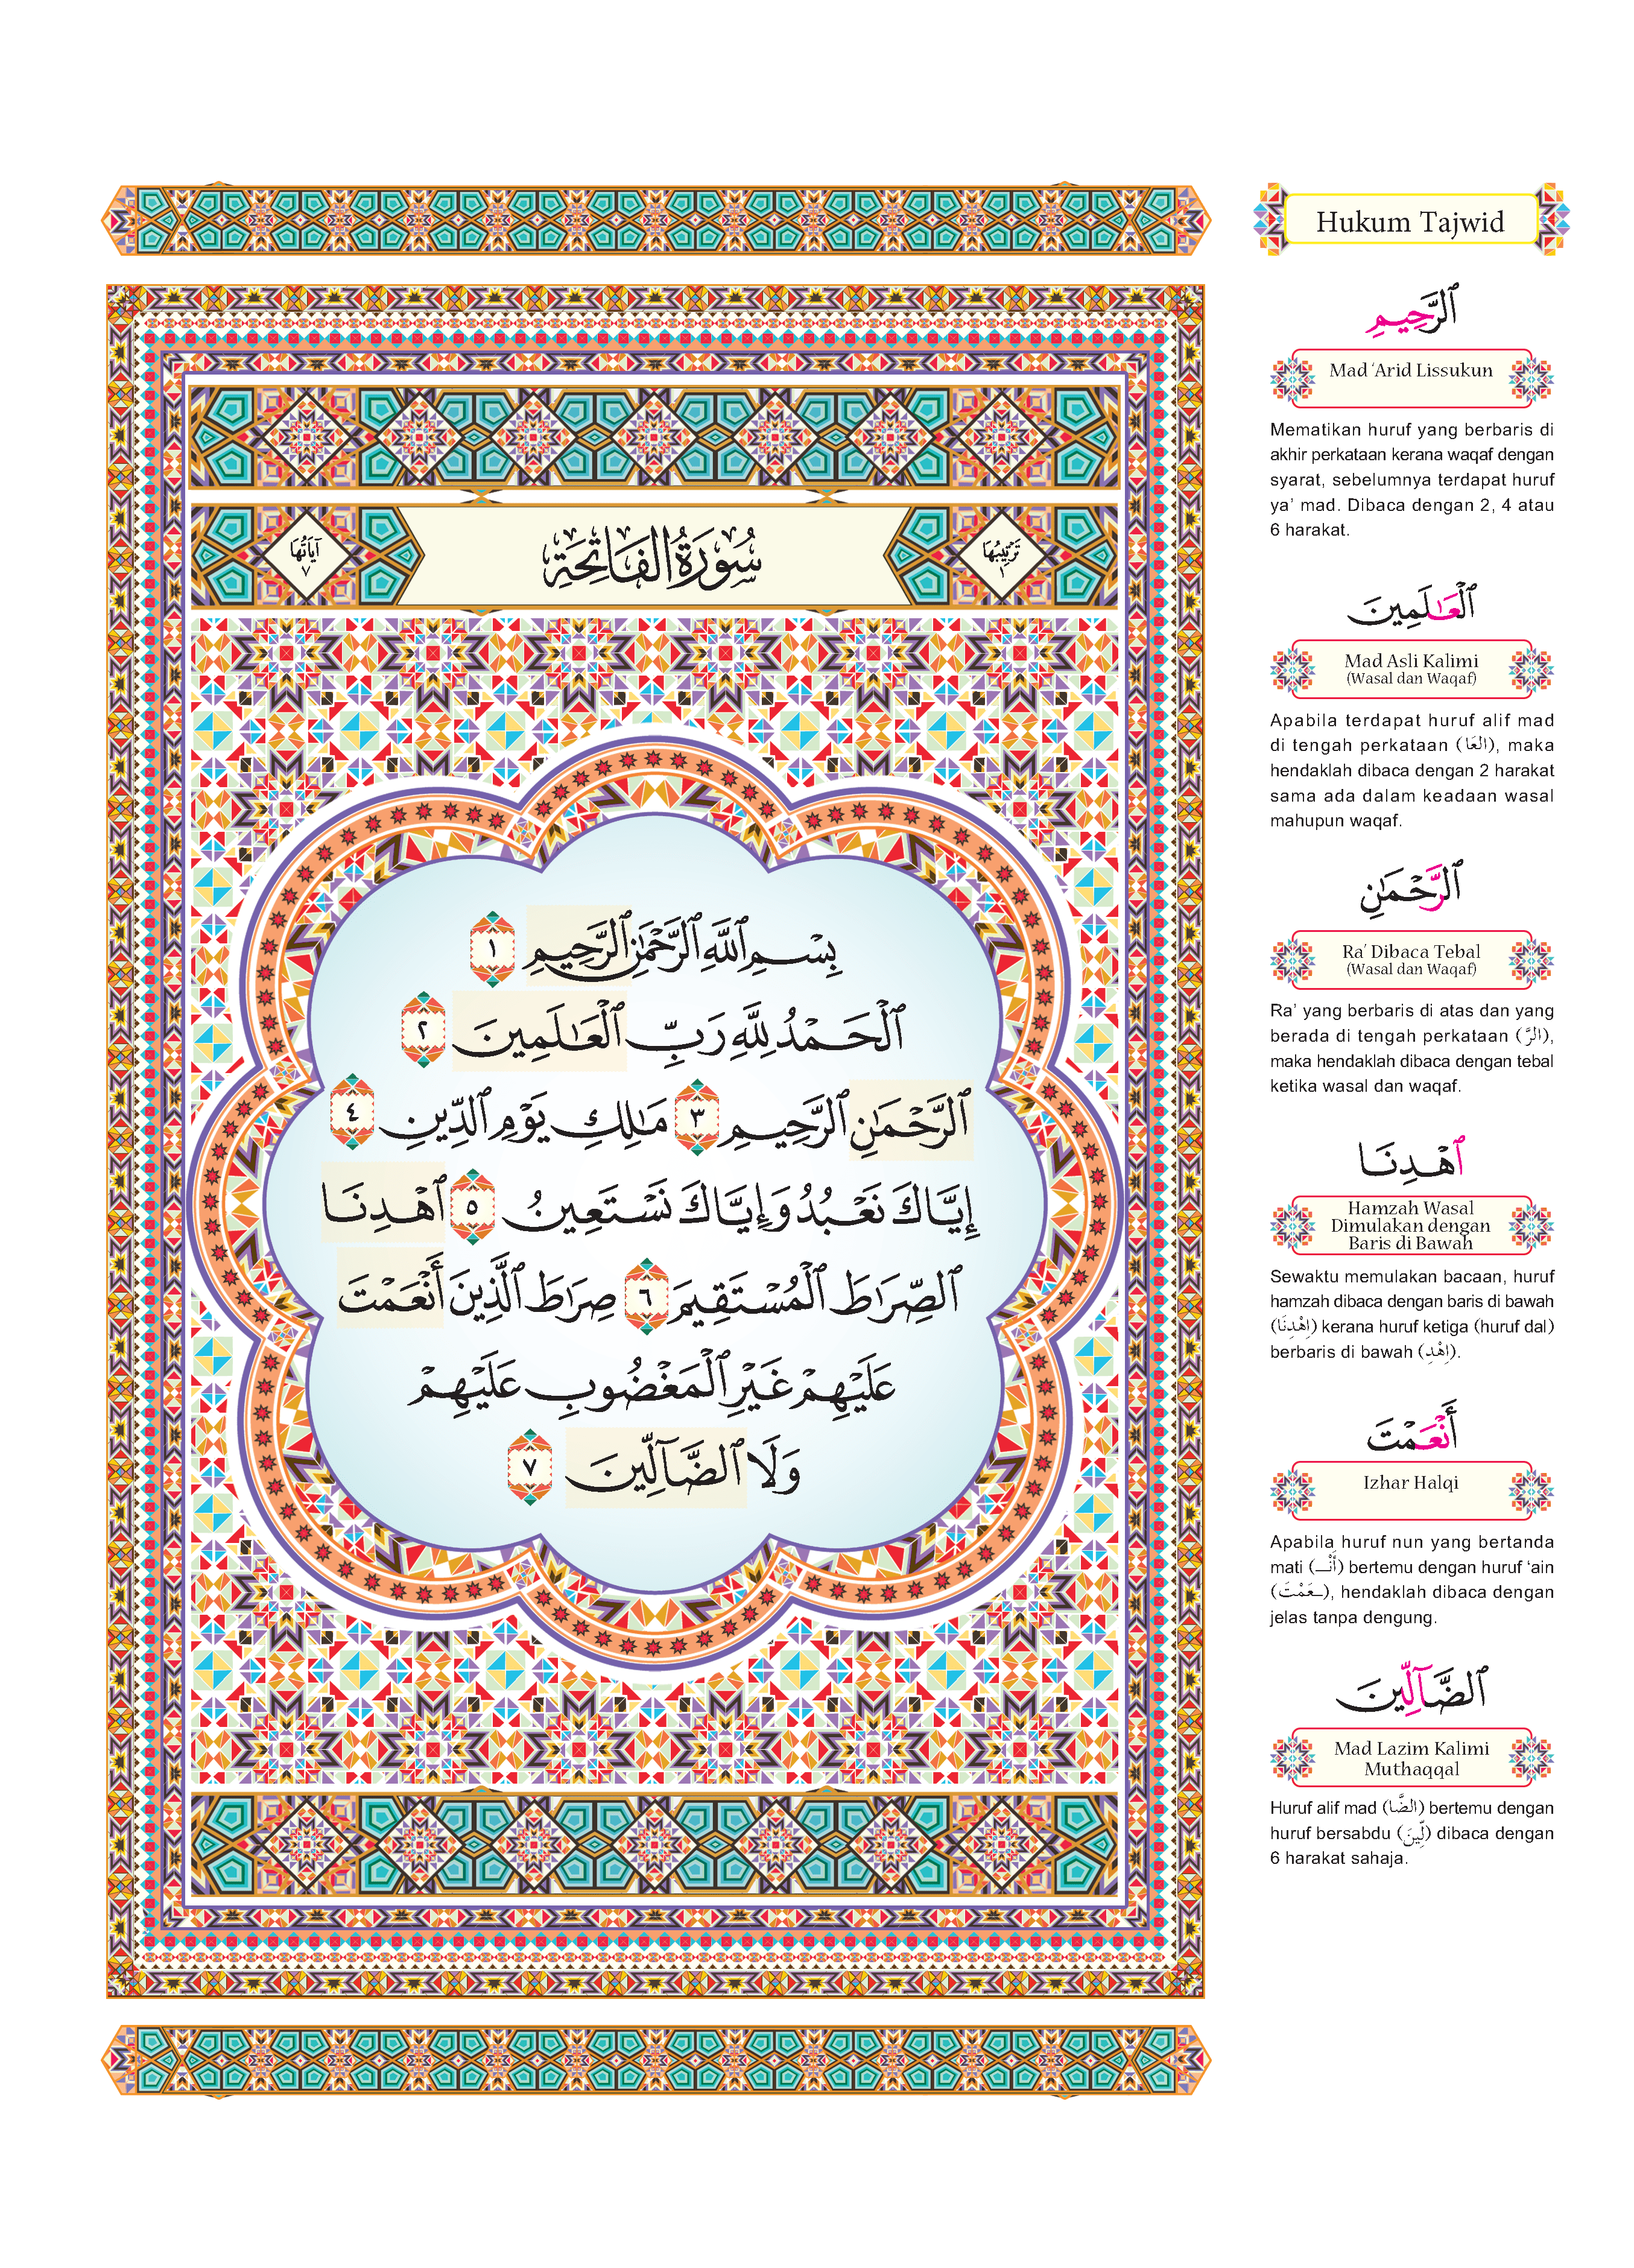 سُورَةُ الفَاتِحَةِ
تَرْتِيبُهَا
١
آيَاتُهَا
٧
بِسْمِ ٱللَّهِ ٱلرَّحْمَٰنِ ٱلرَّحِيمِ ١
ٱلْحَمْدُ لِلَّهِ رَبِّ ٱلْعَٰلَمِينَ ٢
ٱلرَّحْمَٰنِ ٱلرَّحِيمِ ٣ مَٰلِكِ يَوْمِ ٱلدِّينِ ٤
إِيَّاكَ نَعْبُدُ وَإِيَّاكَ نَسْتَعِينُ ٥ ٱهْدِنَا
ٱلصِّرَٰطَ ٱلْمُسْتَقِيمَ ٦ صِرَٰطَ ٱلَّذِينَ أَنْعَمْتَ
عَلَيْهِمْ غَيْرِ ٱلْمَغْضُوبِ عَلَيْهِمْ
وَلَا ٱلضَّآلِّينَ ٧
Hukum Tajwid
ٱلرَّحِيمِ
Mad ‘Arid Lissukun
Mematikan huruf yang berbaris di
akhir perkataan kerana waqaf dengan
syarat, sebelumnya terdapat huruf
ya’ mad. Dibaca dengan 2, 4 atau
6 harakat.
ٱلْعَٰلَمِينَ
Mad Asli Kalimi
(Wasal dan Waqaf)
Apabila terdapat huruf alif mad
di tengah perkataan (العَا), maka
hendaklah dibaca dengan 2 harakat
sama ada dalam keadaan wasal
mahupun waqaf.
ٱلرَّحْمَٰنِ
Ra’ Dibaca Tebal
(Wasal dan Waqaf)
Ra’ yang berbaris di atas dan yang
berada di tengah perkataan (الرَّ),
maka hendaklah dibaca dengan tebal
ketika wasal dan waqaf.
ٱهْدِنَا
Hamzah Wasal
Dimulakan dengan
Baris di Bawah
Sewaktu memulakan bacaan, huruf
hamzah dibaca dengan baris di bawah
(اِهْدِنَا) kerana huruf ketiga (huruf dal)
berbaris di bawah (اِهْدِ).
أَنْعَمْتَ
Izhar Halqi
Apabila huruf nun yang bertanda
mati (أَنْـ) bertemu dengan huruf ‘ain
(ـعَمْتَ), hendaklah dibaca dengan
jelas tanpa dengung.
ٱلضَّآلِّينَ
Mad Lazim Kalimi
Muthaqqal
Huruf alif mad (الضَّا) bertemu dengan
huruf bersabdu (لِّينَ) dibaca dengan
6 harakat sahaja.